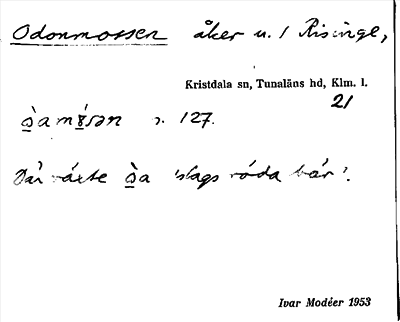 Odonmossen åker u. / Risinge,
Kristdala sn, Tunaläns hd, Klm. l.
21
s. 127.
Där växte slags röda bär'.
Ivar Modéer 1953